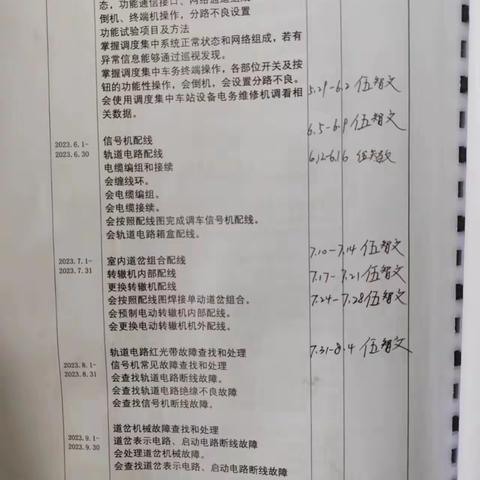 态，功能通信接口、网络通道组成
倒机、终端机操作，分路不良设置
功能试验项目及方法
掌握调度集中系统正常状态和网络组成，若有
异常信息能够通过巡视发现。
掌握调度集中车务终端操作，各部位开关及按
钮的功能性操作，会倒机，会设置分路不良。
会使用调度集中车站设备电务维修机调看相
关数据。
5.29-6.2 伍智文
6.5-6.9 伍智文
2023.6.1-
2023.6.30
信号机配线
轨道电路配线
电缆编组和接续
会缠线环。
会电缆编组。
会电缆接续。
会按照配线图完成调车信号机配线。
会轨道电路箱盒配线。
6.12-6.16 伍智文
2023.7.1-
2023.7.31
室内道岔组合配线
转辙机内部配线
更换转辙机配线
会按照配线图焊接单动道岔组合。
会预制电动转辙机内部配线。
会更换电动转辙机机外配线。
7.10-7.14 伍智文
7.17-7.21 伍智文
7.24-7.28 伍智文
2023.8.1-
2023.8.31
轨道电路红光带故障查找和处理
信号机常见故障查找和处理
会查找轨道电路断线故障。
会查找轨道电路绝缘不良故障
会查找信号机断线故障。
7.31-8.4 伍智文
2023.9.1-
2023.9.30
道岔机械故障查找和处理
道岔表示电路、启动电路断线故障
会处理道岔机械故障。
会查找道岔表示电路、启动电路断线故障